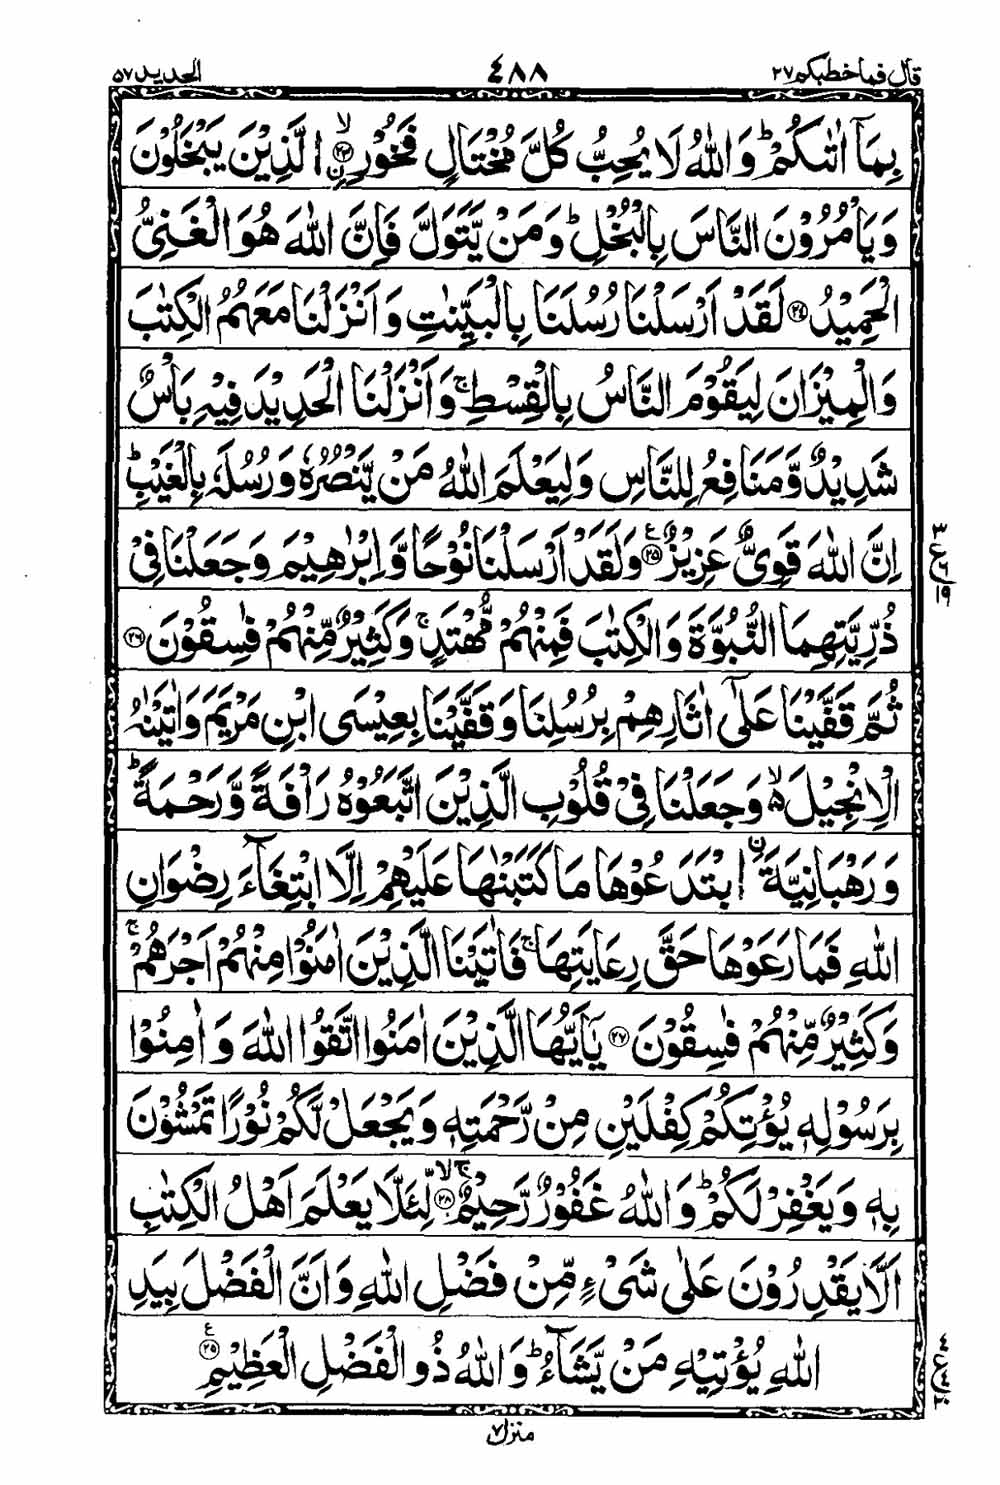 قال فما خطبكم ٢٧ ٤٨٨ الحديد ٥٧
بِمَاۤ اٰتٰىكُمْ ؕ وَاللّٰهُ لَا يُحِبُّ كُلَّ مُخْتَالٍ فَخُوْرِ ۙ﴿۲۳﴾ ۨ الَّذِيْنَ يَبْخَلُوْنَ
وَيَاْمُرُوْنَ النَّاسَ بِالْبُخْلِ ؕ وَمَنْ يَّتَوَلَّ فَاِنَّ اللّٰهَ هُوَ الْغَنِىُّ
الْحَمِيْدُ ﴿۲۴﴾ لَقَدْ اَرْسَلْنَا رُسُلَنَا بِالْبَيِّنٰتِ وَاَنْزَلْنَا مَعَهُمُ الْكِتٰبَ
وَالْمِيْزَانَ لِيَقُوْمَ النَّاسُ بِالْقِسْطِ ۚ وَاَنْزَلْنَا الْحَدِيْدَ فِيْهِ بَاْسٌ
شَدِيْدٌ وَّمَنَافِعُ لِلنَّاسِ وَلِيَعْلَمَ اللّٰهُ مَنْ يَّنْصُرُهٗ وَرُسُلَهٗ بِالْغَيْبِ ؕ
اِنَّ اللّٰهَ قَوِىٌّ عَزِيْزٌ ﴿۲۵﴾ ع وَلَقَدْ اَرْسَلْنَا نُوْحًا وَّاِبْرٰهِيْمَ وَجَعَلْنَا فِىْ
٣ ع ٦ ١٩
ذُرِّيَّتِهِمَا النُّبُوَّةَ وَالْكِتٰبَ فَمِنْهُمْ مُّهْتَدٍ ۚ وَكَثِيْرٌ مِّنْهُمْ فٰسِقُوْنَ ﴿۲۶﴾
ثُمَّ قَفَّيْنَا عَلٰٓى اٰثَارِهِمْ بِرُسُلِنَا وَقَفَّيْنَا بِعِيْسَى ابْنِ مَرْيَمَ وَاٰتَيْنٰهُ
الْاِنْجِيْلَ ۙ۵ وَجَعَلْنَا فِىْ قُلُوْبِ الَّذِيْنَ اتَّبَعُوْهُ رَاْفَةً وَّرَحْمَةً ؕ
وَرَهْبَانِيَّةَ ۨ ابْتَدَعُوْهَا مَا كَتَبْنٰهَا عَلَيْهِمْ اِلَّا ابْتِغَآءَ رِضْوَانِ
اللّٰهِ فَمَا رَعَوْهَا حَقَّ رِعَايَتِهَا ۚ فَاٰتَيْنَا الَّذِيْنَ اٰمَنُوْا مِنْهُمْ اَجْرَهُمْ ۚ
وَكَثِيْرٌ مِّنْهُمْ فٰسِقُوْنَ ﴿۲۷﴾ يٰۤاَيُّهَا الَّذِيْنَ اٰمَنُوا اتَّقُوا اللّٰهَ وَاٰمِنُوْا
بِرَسُوْلِهٖ يُؤْتِكُمْ كِفْلَيْنِ مِنْ رَّحْمَتِهٖ وَيَجْعَلْ لَّكُمْ نُوْرًا تَمْشُوْنَ
بِهٖ وَيَغْفِرْ لَكُمْ ؕ وَاللّٰهُ غَفُوْرٌ رَّحِيْمٌ ۚۙ﴿۲۸﴾ لِّئَلَّا يَعْلَمَ اَهْلُ الْكِتٰبِ
اَلَّا يَقْدِرُوْنَ عَلٰى شَىْءٍ مِّنْ فَضْلِ اللّٰهِ وَاَنَّ الْفَضْلَ بِيَدِ
اللّٰهِ يُؤْتِيْهِ مَنْ يَّشَآءُ ؕ وَاللّٰهُ ذُو الْفَضْلِ الْعَظِيْمِ ع
منزل ٧